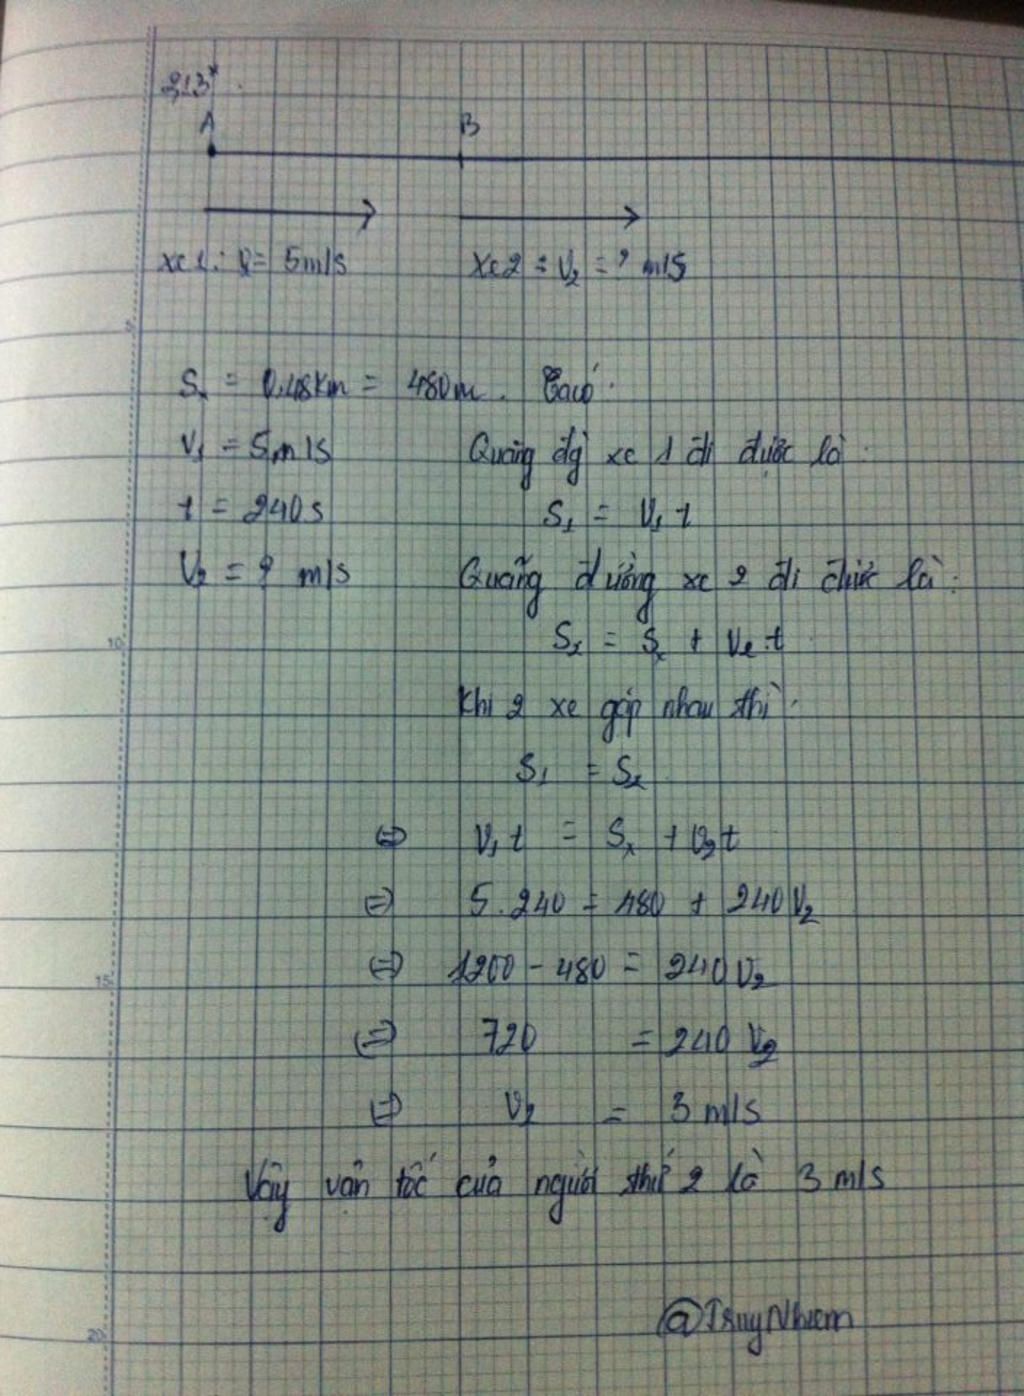 3.13*
A B
xe 1: V = 5m/s Xe 2 = V₂ = ? m/s
5
Sₓ = 0.48Km = 480m. Ta có:
V₁ = 5m/s Quãng đg xe 1 đi được là:
t = 240s S₁ = V₁ t
V₂ = ? m/s Quãng đường xe 2 đi được là:
10 S₂ = Sₓ + V₂.t
Khi 2 xe gặp nhau thì:
S₁ = S₂
⇔ V₁ t = Sₓ + V₂ t
⇔ 5.240 = 480 + 240 V₂
15 ⇔ 1200 - 480 = 240 V₂
⇔ 720 = 240 V₂
⇔ V₂ = 3 m/s
Vậy vận tốc của người thứ 2 là 3 m/s
20 @TruyNhiem